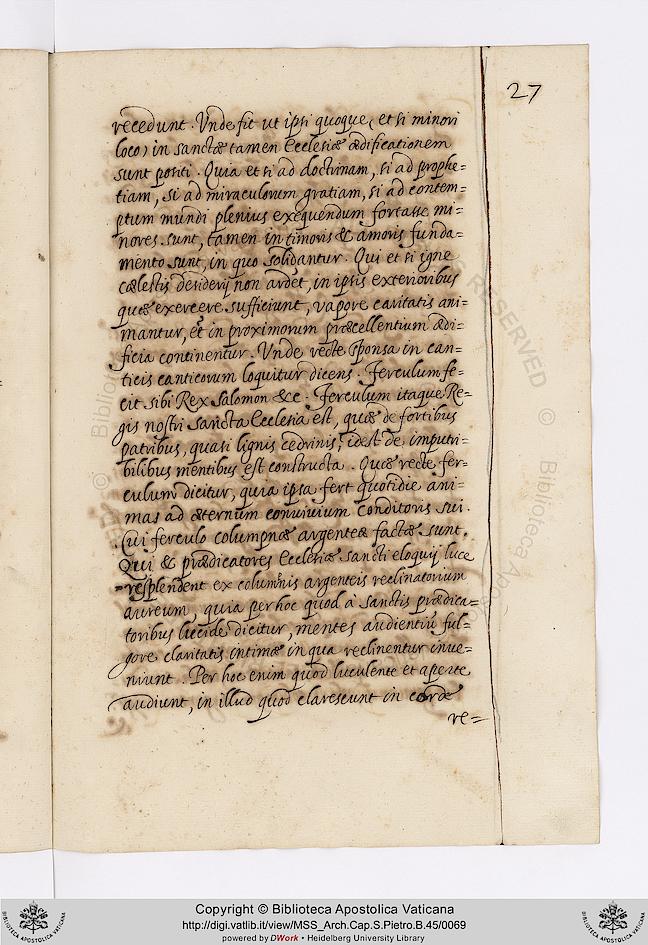 27
recedunt. Vnde fit ut ipsi quoque (et si minori
loco) in sanctæ tamen Ecclesiæ ædificationem
sunt positi. Quia et si ad doctrinam, si ad prophe=
tiam, si ad miraculorum gratiam, si ad contem=
ptum mundi plenius exequendum fortasse mi=
nores sunt, tamen in timoris & amoris funda=
mento sunt, in quo solidantur. Qui et si igne
cælestis desiderij non ardet, in ipsis exterioribus
quæ exercere sufficiunt, vapore caritatis ani=
mantur, et in proximorum præcellentium ædi=
ficia continentur. Vnde recte sponsa in can=
ticis canticorum loquitur dicens. Ferculum fe=
cit sibi Rex Salomon &c. Ferculum itaque Re=
gis nostri sancta Ecclesia est, quæ de fortibus
patribus, quasi lignis cedrinis, idest de imputri=
bilibus mentibus est constructa. Quæ recte fer=
culum dicitur, quia ipsa fert quotidie ani=
mas ad æternum convivium Conditoris sui.
Cui ferculo columpnæ argenteæ factæ sunt.
Qui & prædicatores Ecclesiæ sancti eloquij luce
resplendent ex columnis argenteis reclinatorium
aureum, quia per hoc quod à sanctis prædica=
toribus lucide dicitur, mentes audientiũ ful=
gore claritatis intimæ in qua reclinentur inve=
niunt. Per hoc enim quod luculente et aperte
audiunt, in illud quod clarescunt in corde
re=
RESERVED
© Biblioteca Apos
Copyright © Biblioteca Apostolica Vaticana
http://digi.vatlib.it/view/MSS_Arch.Cap.S.Pietro.B.45/0069
powered by DWork • Heidelberg University Library